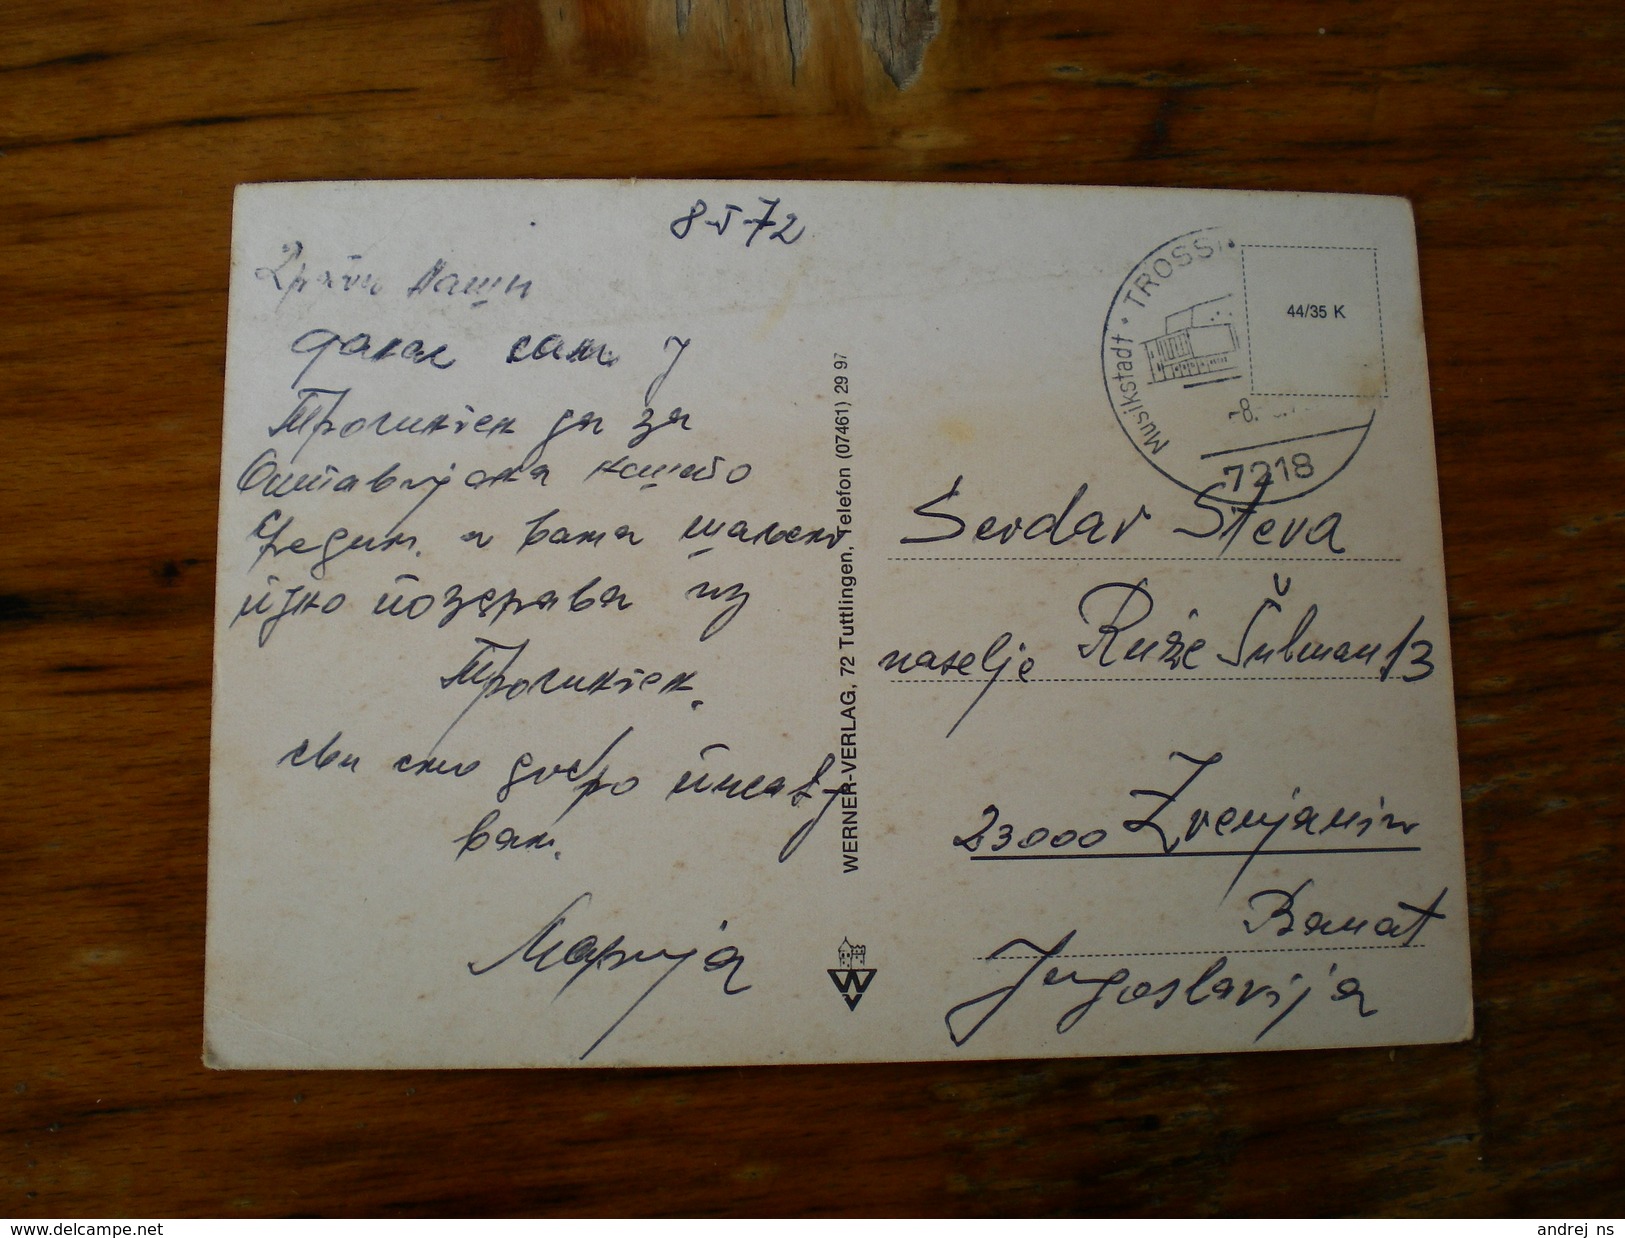 8-V-72
Драги наши
данас сам у
Тросинген да за
Оштавијана нешто
средим. а вама шаљемо
пуно поздрава из
Тросинген.
сви смо добро писаћу
вам.
Марија
WERNER-VERLAG, 72 Tuttlingen, Telefon (07461) 29 97
Musikstadt • TROSSI
-8.
7218
44/35 K
Serdar Steva
naselje Ruže Šulman 13
23000 Zrenjanin
Banat
Jugoslavija
www.delcampe.net
andrej_ns